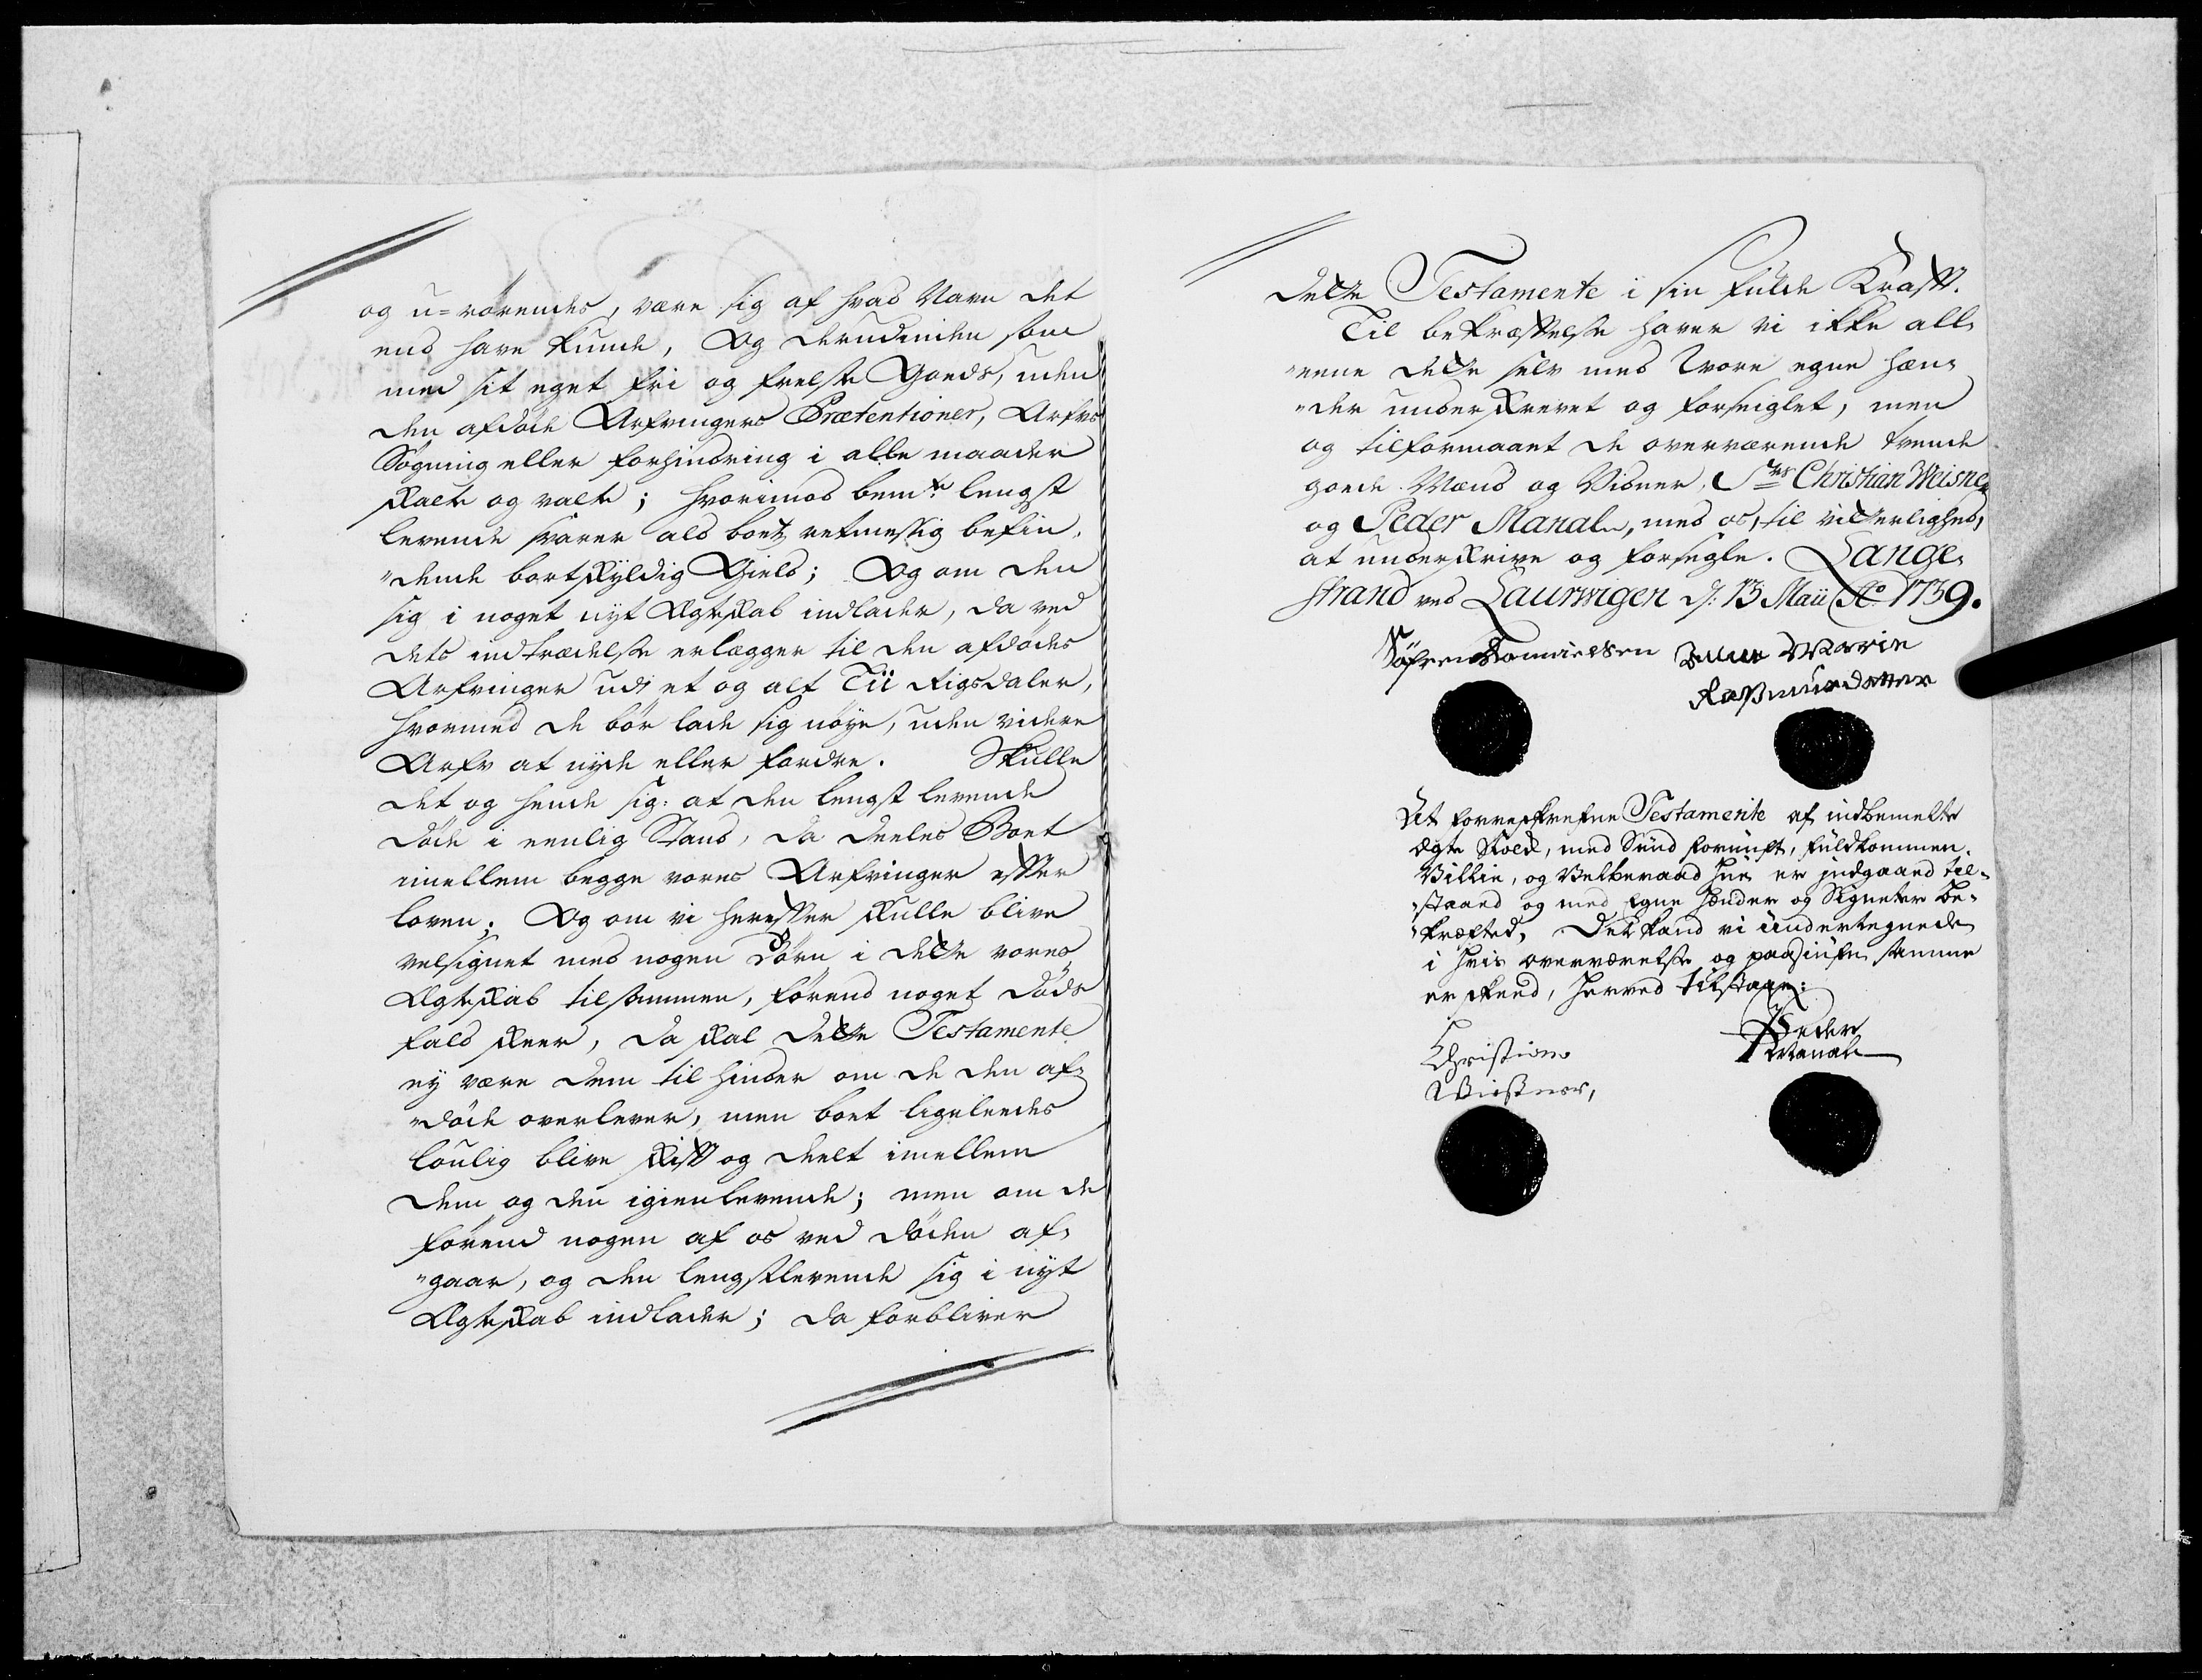 og u=rörendes, være sig af hvad Navn det
end have kunde, Og derudinden som
med sit eget fri og frelste Goeds, uden
den afdöde Arfvingers Prætentioner, Arfvs
Sögning eller forhindring i alle maader
skalte og valte; hvorimod bemte lengst
levende svarer ald boets retmessig befin„
„dende bortskyldig Gield; Og om den
sig i noget nyt Ægteskab indlader, da ved
dets indtrædelse erlægger til den afdödes
Arfvinger udj et og alt Tii Rigsdaler,
hvormed de bör lade sig nöye, uden videre
Arfv at nyde eller fordre. Skulle
det og hende sig: at den lengst levende
döde i eenlig Stand, da deeles Boet
imellem begge vores Arfvinger efter
loven; Og om vi herefter skulle blive
velsignet med nogen Börn i dette vores
Ægteskab tilsammen, förend noget döds
fald skeer, da skal dette Testamente
ey være dem til hinder om de den af„
„döde overlever, men boet ligeleedes
loulig blive skift og deelt imellem
dem og den igienlevende; men om de
förend nogen af os ved döden af„
„gaar, og den lengstlevende sig i nyt
Ægteskab indlader; da forbliver
dette Testamente i sin fulde Kraft.
Til bekræftelse haver vi ikke all„
„eene dette selv med Vore egne hæn„
„der underskrevet og forseiglet, men
og tilformaaet de overværende tvende
goede Mænd og Vidner, Sr Christian Weisner
og Peder Manal, med os, til vitterlighed,
at underskrive og forsegle. Lange„
strand ved Laurwigen d: 13 Maii Ao 1739.
Söfren Marie
Rasmusdatter
At forreskrefne Testamente af indbemelte
Ægte Folck, med Sund fornuft, fuldkommen
Villie, og Velberaad Hue er indgaaed til„
„staaed og med Egne Hænder og Signeter be„
„kræfted, Det kand vi undertegnede
i hvis overværelse og paasiufn samme
er skeed, Herved tilstaae:
Christian Peder
Wiesner, Manal